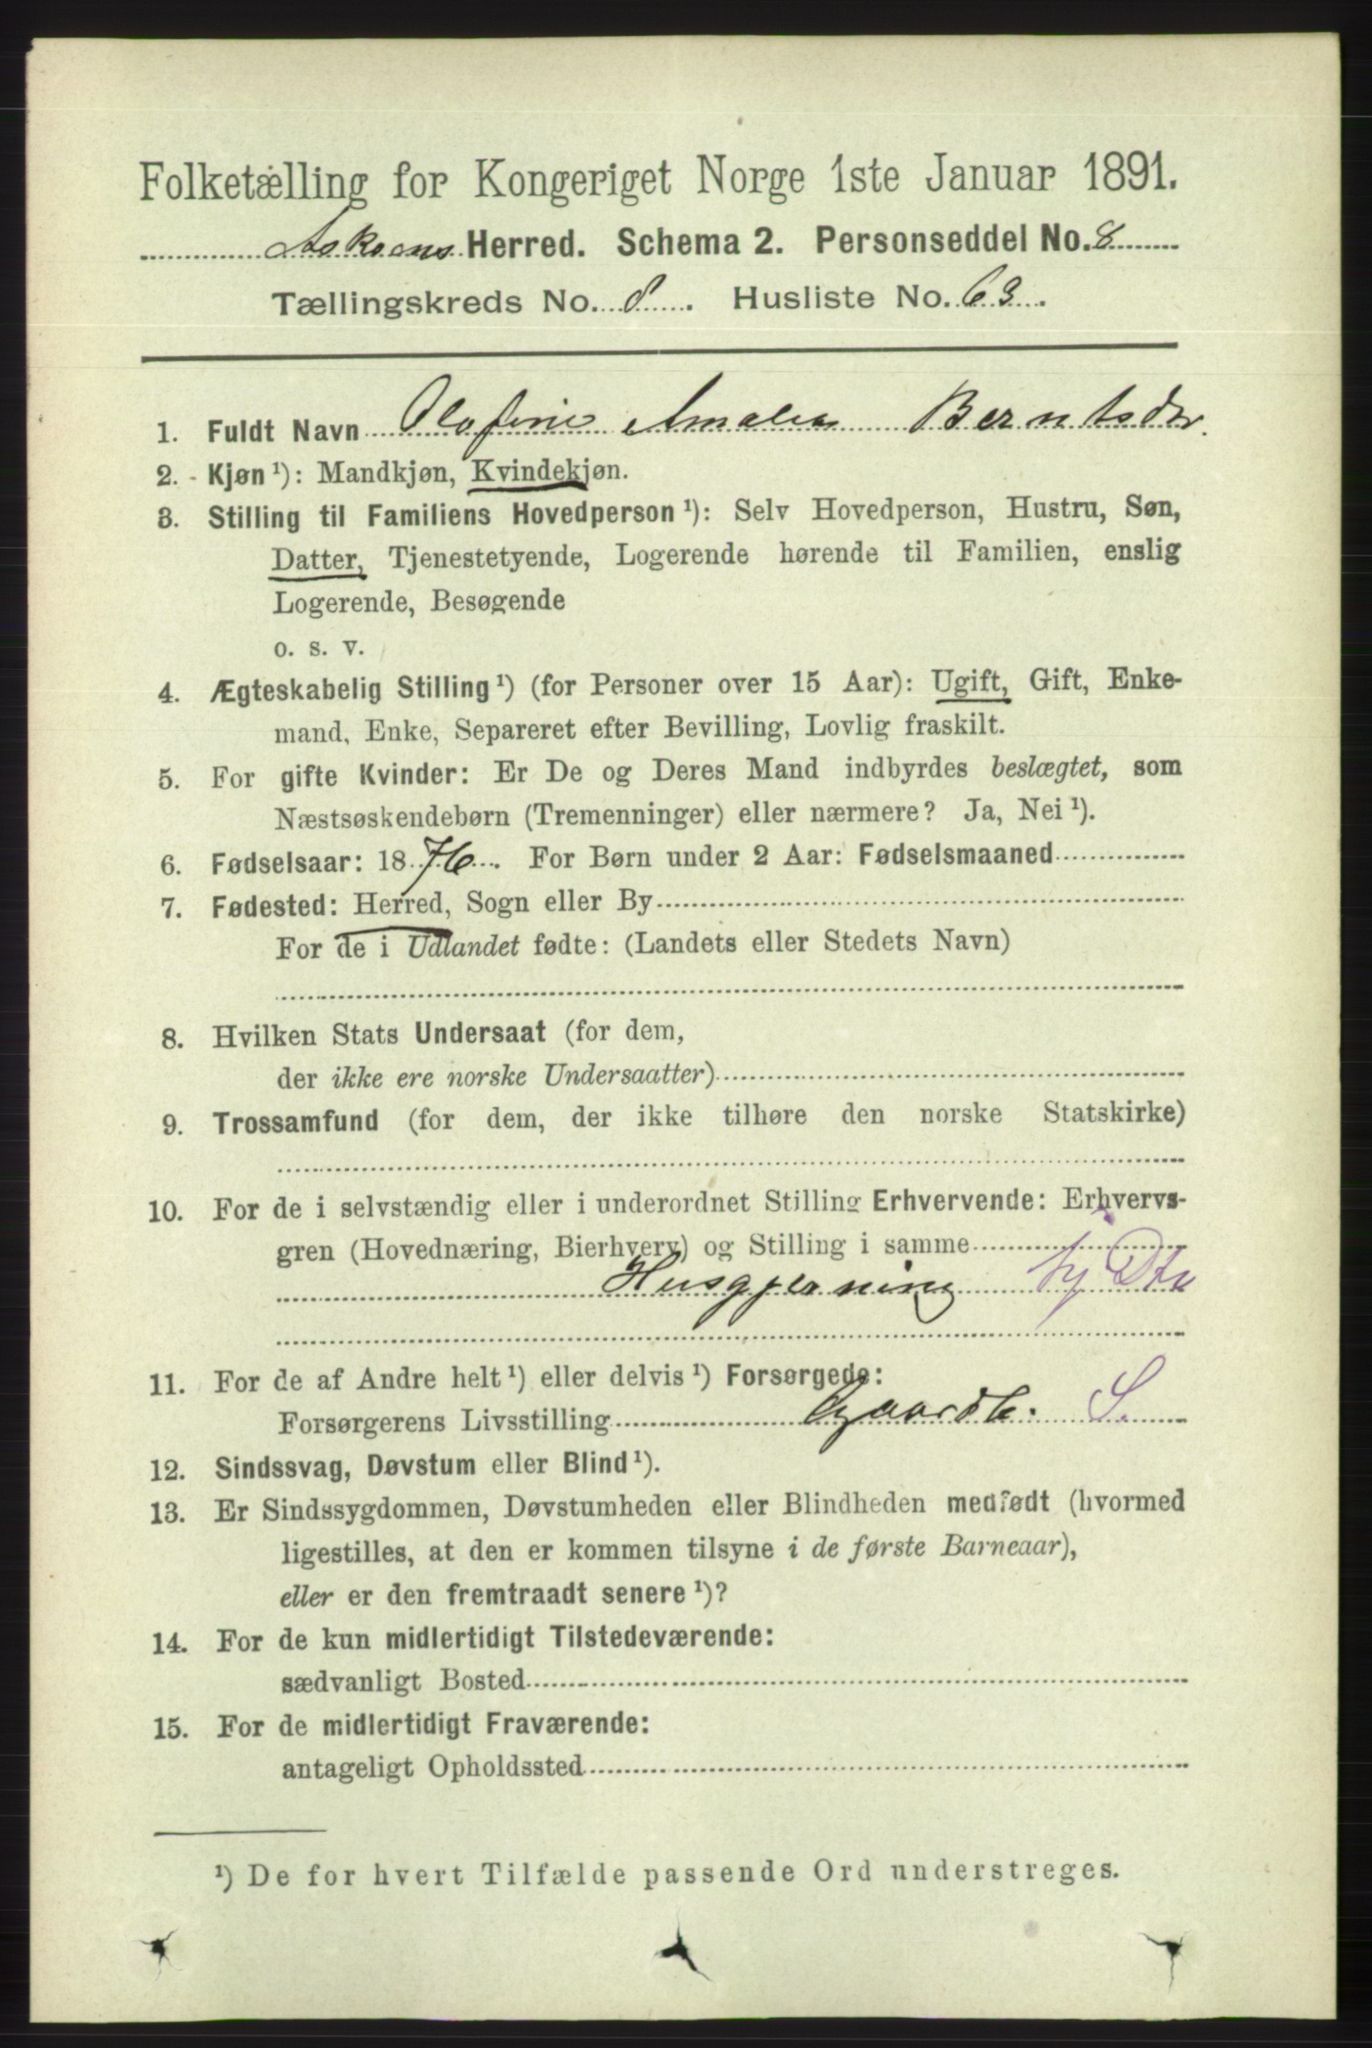 Folketælling for Kongeriget Norge 1ste Januar 1891.
Askøens Herred. Schema 2. Personseddel No. 8
Tællingskreds No. 8. Husliste No. 63.
1. Fuldt Navn Olafine Amalia Berntsdtr.
2. Kjøn ¹): Mandkjøn, Kvindekjøn.
3. Stilling til Familiens Hovedperson ¹): Selv Hovedperson, Hustru, Søn,
Datter, Tjenestetyende, Logerende hørende til Familien, enslig
Logerende, Besøgende
o. s. v.
4. Ægteskabelig Stilling ¹) (for Personer over 15 Aar): Ugift, Gift, Enke-
mand, Enke, Separeret efter Bevilling, Lovlig fraskilt.
5. For gifte Kvinder: Er De og Deres Mand indbyrdes beslægtet, som
Næstsøskendebørn (Tremenninger) eller nærmere? Ja, Nei ¹).
6. Fødselsaar: 1876. For Børn under 2 Aar: Fødselsmaaned
7. Fødested: Herred, Sogn eller By
For de i Udlandet fødte: (Landets eller Stedets Navn)
8. Hvilken Stats Undersaat (for dem,
der ikke ere norske Undersaatter)
9. Trossamfund (for dem, der ikke tilhøre den norske Statskirke)
10. For de i selvstændig eller i underordnet Stilling Erhvervende: Erhvervs-
gren (Hovednæring, Bierhverv) og Stilling i samme
Husgjerning
11. For de af Andre helt ¹) eller delvis ¹) Forsørgede:
Forsørgerens Livsstilling Gaardb. S.
12. Sindssvag, Døvstum eller Blind ¹).
13. Er Sindssygdommen, Døvstumheden eller Blindheden medfødt (hvormed
ligestilles, at den er kommen tilsyne i de første Barneaar),
eller er den fremtraadt senere ¹)?
14. For de kun midlertidigt Tilstedeværende:
sædvanligt Bosted
15. For de midlertidigt Fraværende:
antageligt Opholdssted
¹) De for hvert Tilfælde passende Ord understreges.